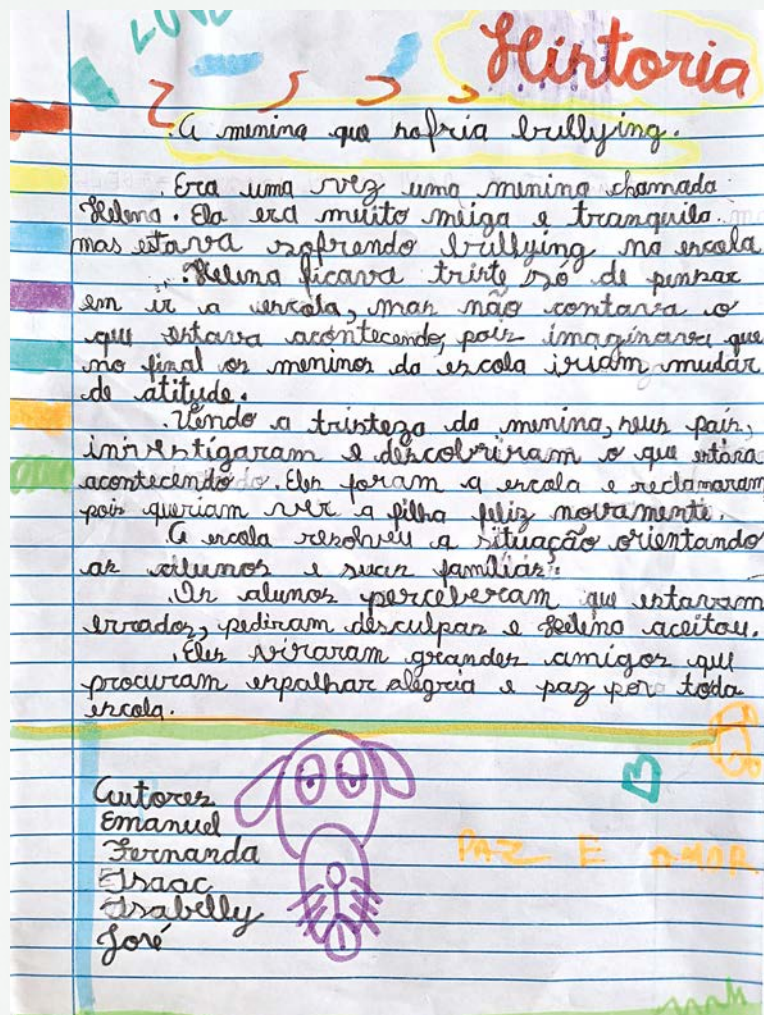 LOVE
História
A menina que sofria bullying.
Era uma vez uma menina chamada
Helena. Ela era muito meiga e tranquila
mas estava sofrendo bullying na escola
Helena ficava triste só de pensar
em ir a escola, mas não contava o
que estava acontecendo, pois imaginava que
no final os meninos da escola iriam mudar
de atitude.
Vendo a tristeza da menina, seus pais,
investigaram e descobriram o que estava
acontecendo. Eles foram a escola e reclamaram
pois queriam ver a filha feliz novamente.
A escola resolveu a situação orientando
as alunos e suas famílias.
Os alunos perceberam que estavam
errados, pediram desculpas e Helena aceitou.
Eles viraram grandes amigos que
procuram espalhar alegria e paz por toda
escola.
Autores
Emanuel
Fernanda
PAZ E AMOR
Isaac
Isabelly
José